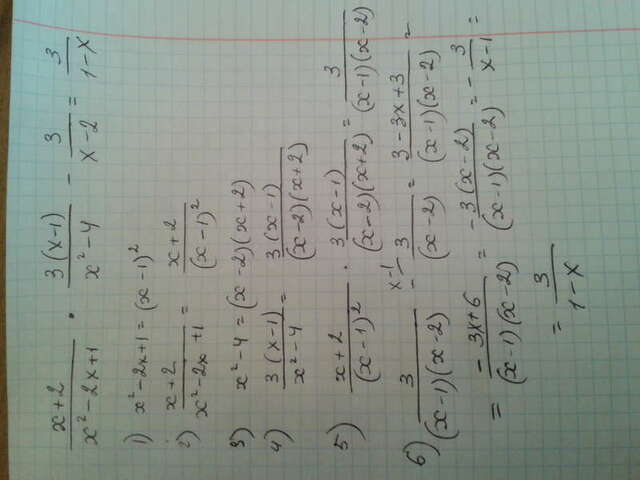 x+2/x²-2x+1 · 3(x-1)/x²-4 - 3/x-2 = 3/1-x
1) x²-2x+1 = (x-1)²
2) x+2/x²-2x+1 = x+2/(x-1)²
3) x²-4 = (x-2)(x+2)
4) 3(x-1)/x²-4 = 3(x-1)/(x-2)(x+2)
5) x+2/(x-1)² · 3(x-1)/(x-2)(x+2) = 3/(x-1)(x-2)
6) 3/(x-1)(x-2) - x-1 3/(x-2) = 3-3x+3/(x-1)(x-2) =
= -3x+6/(x-1)(x-2) = -3(x-2)/(x-1)(x-2) = -3/x-1 =
= 3/1-x